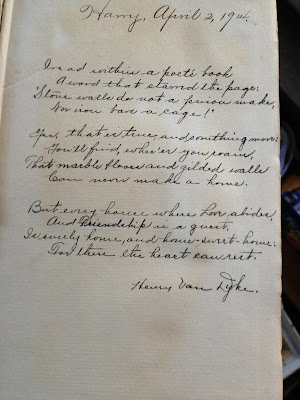 Harry, April 2, 1914.
I read within a poet's book
A word that starred the page:
"Stone walls do not a prison make,
Nor iron bars a cage!"
Yes, that is true, and something more:
You'll find, where'er you roam,
That marble floors and gilded walls
Can never make a home.
But every house where Love abides,
And Friendship is a guest,
Is surely home, and home-sweet-home:
For there the heart can rest.
Henry Van Dyke.